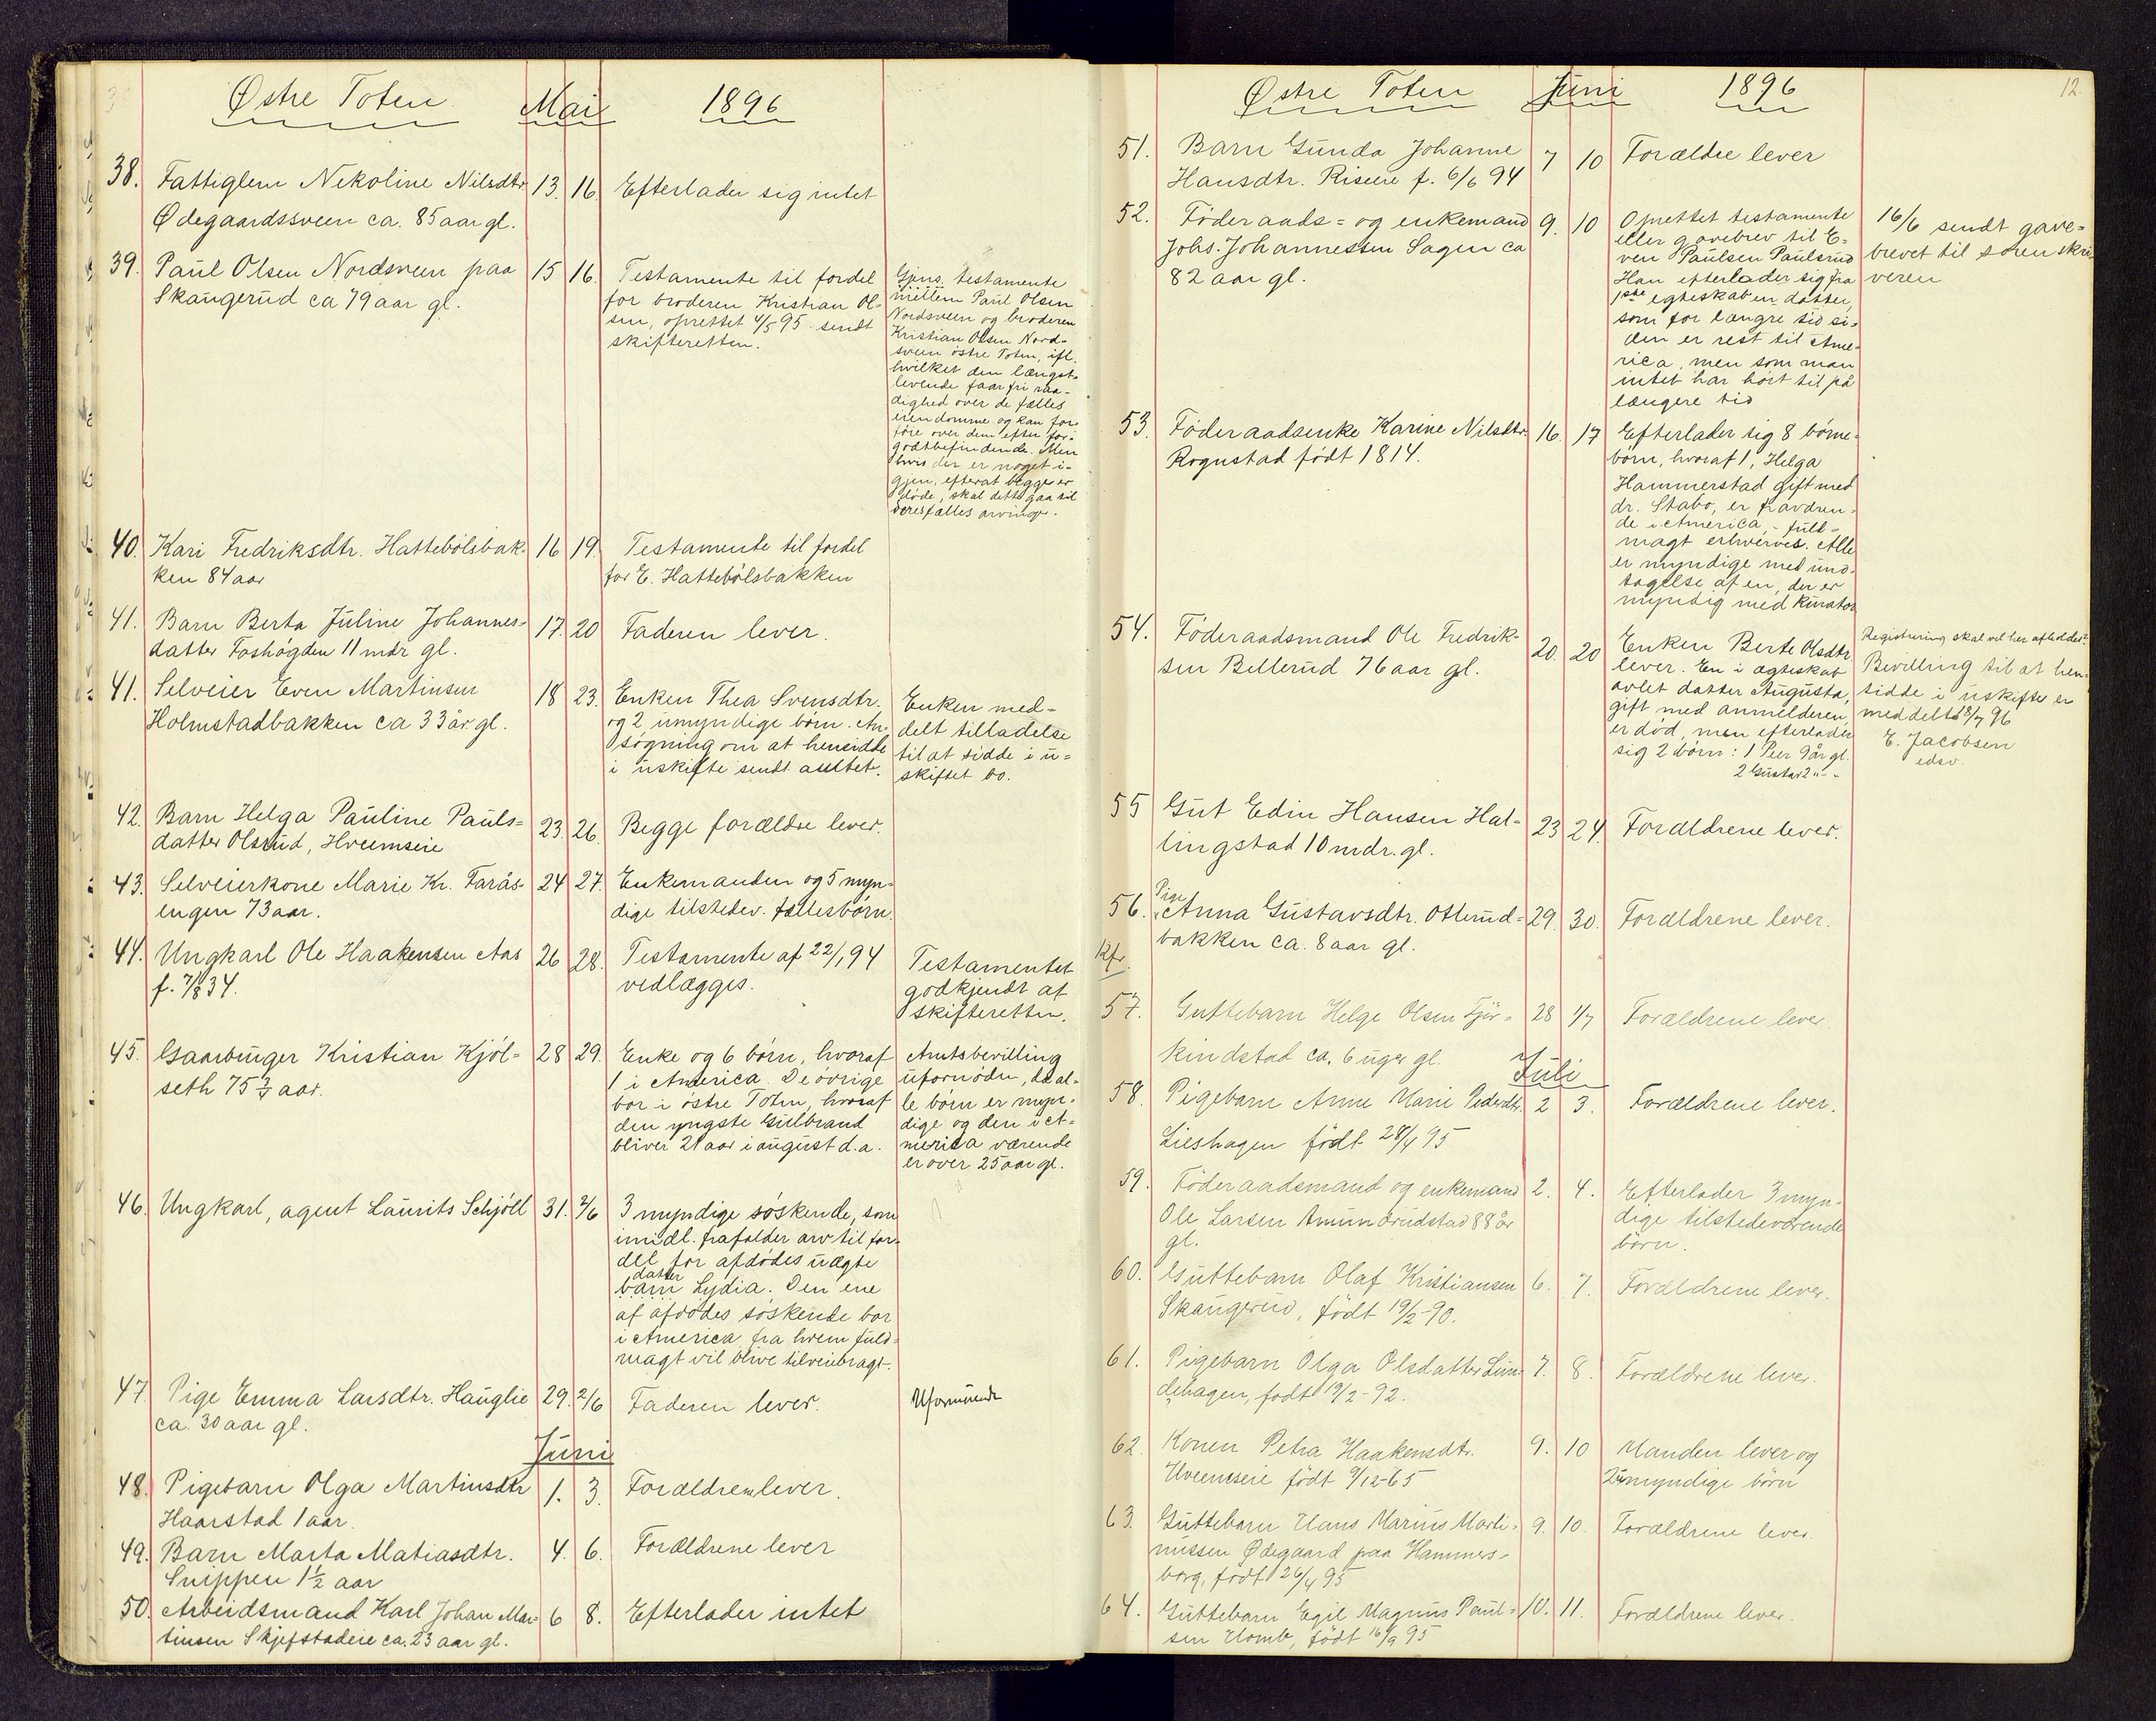 Østre Toten Mai 1896
38. Fattiglem Nikoline Nilsdtr. 13. 16. Efterlader sig intet
Ødegaardssveen ca. 85 aar gl.
39. Paul Olsen Nordsveen paa 15 16. Testamente til fordel
Skaugerud ca 79 aar gl.
for broderen Kristian Ol-
sen, oprettet 4/5 95. sendt
skifteretten.
Gjens. testamente
mellem Paul Olsen
Nordsveen og broderen
Kristian Olsen Nord-
sveen østre Toten, ifl.
hvilket den længst-
levende faar fri raa-
dighed over de fælles
eiendomme og kan for-
føie over dem efter for-
godtbefindende. Men
hvis der er noget i-
gjen, efterat begge er
døde, skal dette gaa til
deres fælles arvinger.
40. Kari Fredriksdtr. Hattebølsbak- 16 19. Testamente til fordel
ken 84 aar
for E. Hattebølsbakken
41. Barn Berta Juline Johannes- 17. 20 Faderen lever.
datter Foshøgden 11 mdr gl.
41. Selveier Even Martinsen 18 23. Enken Thea Svensdtr.
Holmstadbakken ca 33 år gl.
og 2 umyndige børn. An-
søgning om at hensidde
i uskifte sendt amtet.
Enken med-
delt tilladelse
til at sidde i u-
skiftet bo.
42. Barn Helga Pauline Pauls- 23. 26. Begge forældre lever.
datter Olsrud, Hveemseie
43. Selveierkone Marie Kr. Farås- 24 27. Enkemanden og 5 myn-
engen 73 aar.
dige tilstedev. fællesbørn.
44. Ungkarl Ole Haakensen Aas 26 28. Testamente af 22/1 94
f. 7/8 34.
vedlægges.
Testamentet
godkjendt af
skifteretten.
45. Gaardbruger Kristian Kjøl- 28 29. Enke og 6 børn, hvoraf
seth 75 3/4 aar.
1 i America. De øvrige
bor i østre Toten, hvoraf
den yngste Gulbrand
bliver 21 aar i august d. a.
Amtsbevilling
ufornøden, da al-
le børn er myn-
dige og den i A-
merica værende
er over 25 aar gl.
46. Ungkarl, agent Laurits Schjöll 31. 2/6 3 myndige søskende, som
imidl. frafalder arv til for-
del for afdødes uægte
datter
barn Lydia. Den ene
af afdødes søskende bor
i America fra hvem fuld-
magt vil blive tilveiebragt.
47. Pige Emma Larsdtr. Hauglie 29. 2/6 Faderen lever. Uformuende
ca. 30 aar gl.
Juni
48. Pigebarn Olga Martinsdtr 1. 3. Forældrene lever.
Haarstad 1 aar.
49. Barn Marta Matiasdtr. 4. 6. Forældrene lever
Snippen 1 1/2 aar
50. Arbeidsmand Karl Johan Mar- 6 8. Efterlader intet
tinsen Skjefstadeie ca. 23 aar gl.
Østre Toten Juni 1896 12.
51. Barn Gunda Johanne 7 10 Forældre lever
Hansdtr. Riseeie f. 6/6 94
52. Föderaads- og enkemand 9. 10
Johs. Johannessen Sagen ca
82 aar gl.
Oprettet testamente
eller gavebrev til E-
ven Paulsen Paulsrud
Han efterlader sig fra
1ste egteskab en datter,
som for længre tid si-
den er rest til Ame-
rica, men som man
intet har hört til på
længere tid
16/6 sendt gave-
brevet til sorenskri-
veren
53. Föderaadsenke Karine Nilsdtr. 16. 17 Efterlader sig 8 börne-
Rognstad födt 1814.
børn, hvoraf 1, Helga
Hammerstad gift med
dr. Stabo, er fraværen-
de i America, - full-
magt erhverves. Alle
er myndige med und-
tagelse af en, der er
myndig med kurator
54. Föderaadsmand Ole Fredrik- 20. 20 Enken Berte Olsdtr
sen Bellerud 76 aar gl.
lever. En i ægteskab
avlet datter Augusta,
gift med anmelderen,
er død, men efterlader
sig 2 börn: 1 Peer 9 år gl.
2 Gustav 2 " -
Registrering skal vel her afholdes?
Bevilling til at hen-
sidde i uskifte er
meddelt 18/7 96
E. Jacobsen
edsv.
55 Gut Edin Hansen Hal- 23 24. Forældrene lever.
lingstad 10 mdr. gl.
Pige
56. Anna Gustavsdtr. Otterud- 29. 30. Forældrene lever.
bakken ca. 8 aar gl.
57. Guttebarn Helge Olsen Gjør- 28 1/7 Forældrene lever.
kindstad ca. 6 uger gl.
Juli
58. Pigebarn Anne Marie Pedersdtr. 2 3. Forældrene lever.
Lieshagen født 28/4 95
59. Föderaadsmand og enkemand 2. 4. Efterlader 3 myn-
Ole Larsen Amundrudstad 88 år
gl.
dige tilstedeværende
börn.
60. Guttebarn Olaf Kristiansen 6. 7. Forældrene lever.
Skaugerud, født 19/2-90.
61. Pigebarn Olga Olsdatter Lun- 7. 8. Forældrene lever.
dehagen, født 19/2-92.
62. Konen Petra Haakensdtr. 9. 10 Manden lever og
Hveemseie født 9/12-65
2 umyndige börn
63. Guttebarn Hans Marius Marti- 9. 10. Forældrene lever.
niussen Ødegaard paa Hammers-
borg, født 26/4 95
64. Guttebarn Egil Magnus Paul- 10. 11. Forældrene lever.
sen Homb, født 16/9 95